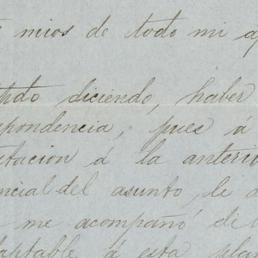 mios de todo mi
diciendo, haber
pondencia, pues á
tacion á la anteri
ncial del asunto, le
me acompañó di
aptable á esta pla